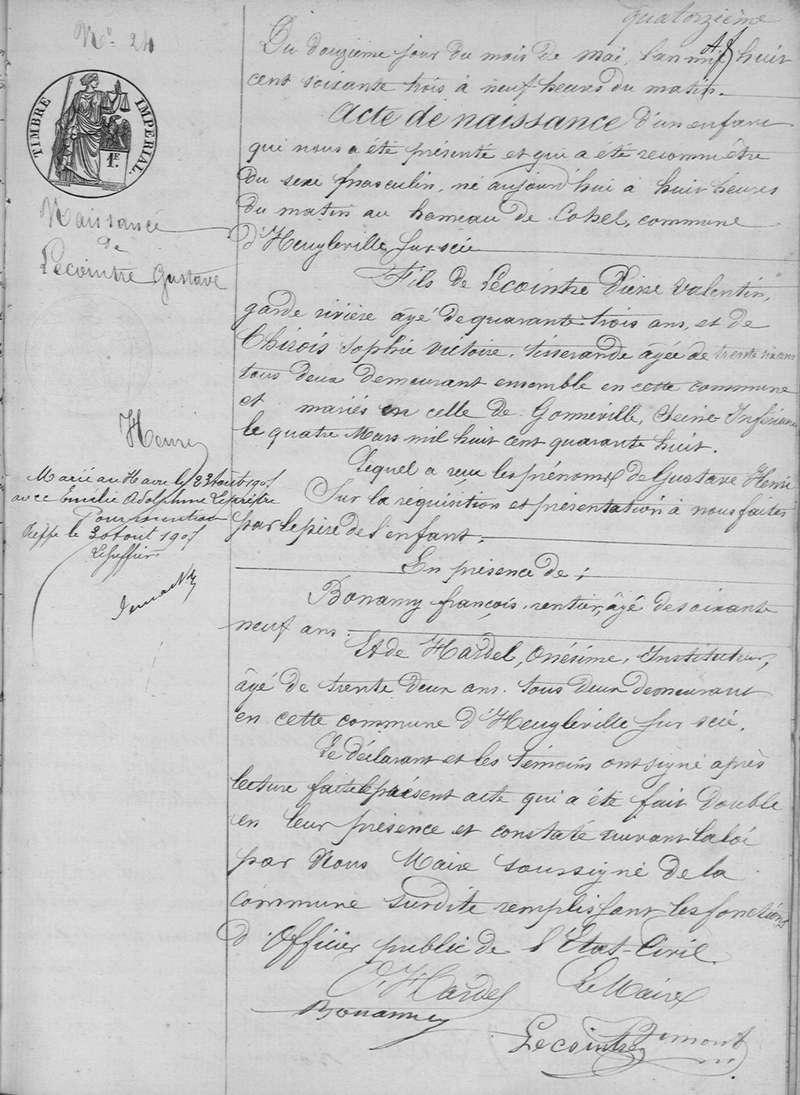 quatorzième
N° 24
Du douzième jour du mois de mai, l'an mil huit
cent soixante trois à neuf heures du matin.
TIMBRE IMPÉRIAL
1F.
Acte de naissance d'un enfant
qui nous a été présenté et qui a été reconnu être
du sexe masculin, né aujourd'hui à huit heures
du matin au hameau de Cohel, commune
d'Heugleville sur scie
Naissance
de
Lecointre Gustave
Henri
Fils de Lecointre Désiré Valentin,
garde rivière âgé de quarante trois ans, et de
Sophie Victoire, tisserande âgée de trente ans
tous deux demeurant ensemble en cette commune
et mariés en celle de Gonneville, Seine Inférieure
le quatre Mars mil huit cent quarante huit.
Lequel a reçu les prénoms de Gustave Henri
Sur la réquisition et présentation à nous faites
par le père de l'enfant.
Marié au Havre le 23 août 190
avec Emilie Adolphine
Pour mention
Dieppe le 30 août 190
Le Greffier
En présence de :
Bonamy françois, rentier, âgé de soixante
neuf ans.
Et de Hardel, Onésime, Instituteur,
âgé de trente deux ans. tous deux demeurant
en cette commune d'Heugleville sur scie.
Le déclarant et les témoins ont signé après
lecture faite le présent acte qui a été fait double
en leur présence et constaté suivant la loi
par Nous Maire soussigné de la
commune susdite remplissant les fonctions
d'Officier public de l'État-Civil.
O. Hardel Le Maire
Bonamy
Lecointre